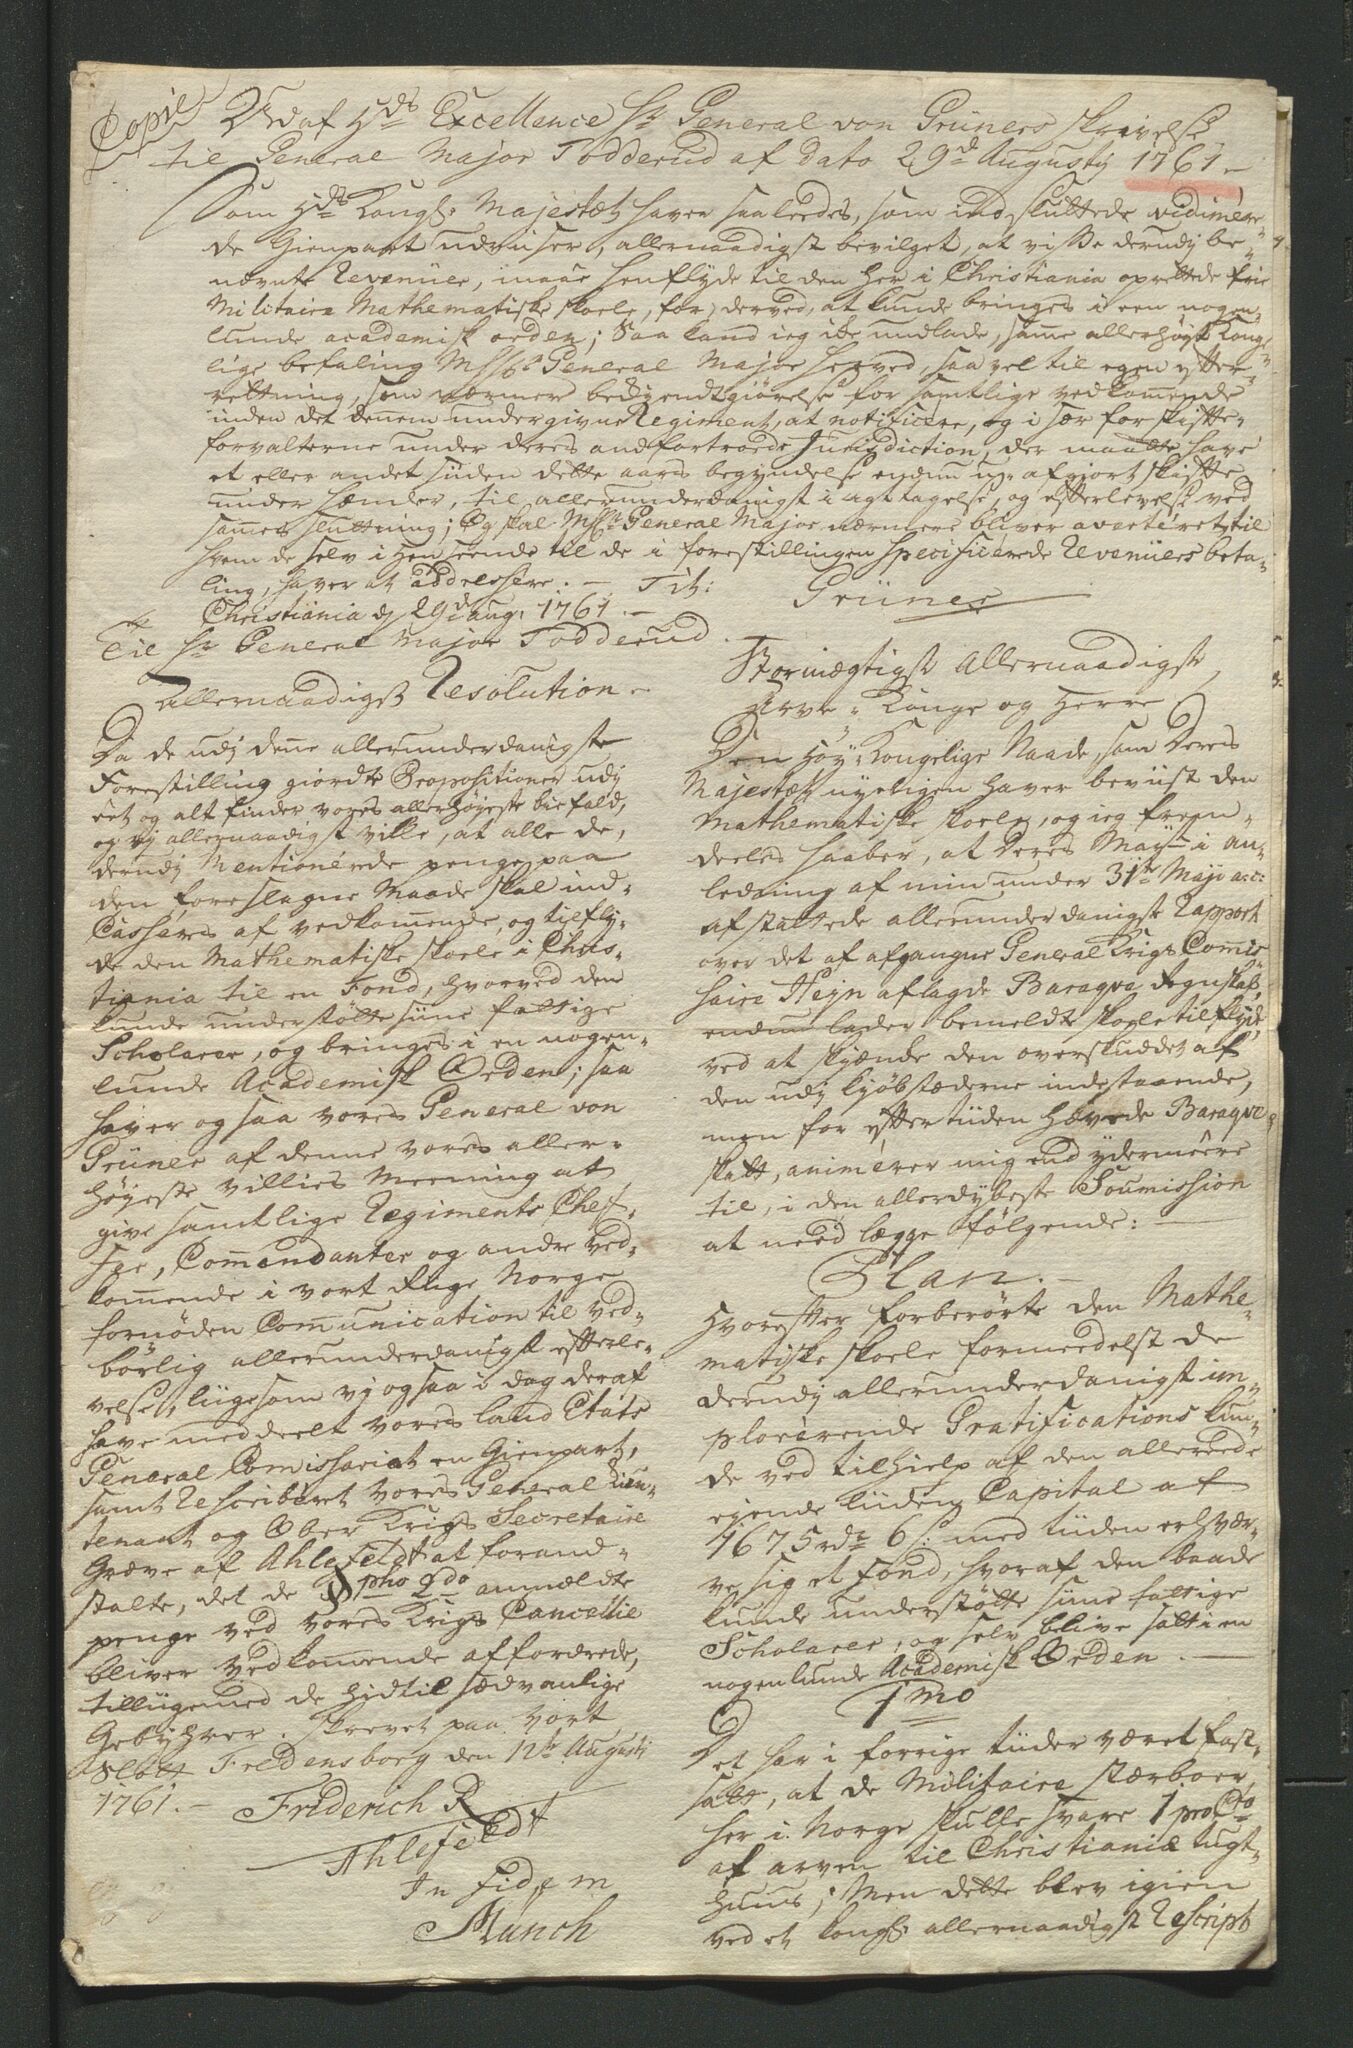 Copie
Udaf Hds Excellence Hr General von Grüners skrivelse
til General Major Todderud af dato 29de Augusty 1761.
Som Hds Kongl: Majestæt haver saaleedes, som indsluttede vidimere-
de Gienpart udviser, allernaadigst bevilget, at visse derudj be-
nævnte Revenüer, maae henflyde til den her i Christiania oprettede frie
Militaire Mathematiske skoele, for derved, at kunde bringes i een nogen-
lunde academisk orden; Saa kand ieg ike undlade, same allerhøyst Konge-
lige befaling General Major herved, saa vel til egen efter-
rettning, som nærmere bekyendtgiørelse for samtlige vedkomende
inden det dennem undergivne Regiment, at notificere, og i sær for skifte-
forvalterne under deres andfortroede Jurisdiction, der maatte have
et eller andet siden dette aars begyndelse endnu u-afgiort skifte
under hænder, til allerunderdanigst iagttagelse, og efterlevelse ved
sammes sluttning; Og skal General Major nærmere bliver averteret, til
hvem de selv i henseende til de i forestillingen specificerede Revenüers beta-
ling, haver at addressere. — Tit:
Christiania d 29de aug: 1761. —
Grüner
Til Hr General Major Todderud.
Allernaadigst Resolution.
Da de udj denne allerunderdanigste
Forestilling giordte Propositioner udj
eet og alt finder vores allerhøyeste biefald,
og vj allernaadigst ville, at alle de,
derudj Mentionerede penge paa
den foreslagne Maade skal ind-
Casseres af vedkommende, og tilfly-
de den Mathematiske skoele i Chris-
tiania til en Fond, hvorved den
kunde understøtte sine fattige
Scholarer, og bringes i en nogen-
lunde Academisk Orden; saa
haver og saa vores General von
Grüner af denne vores aller-
høyeste villies Meening at
give samtlige Regiments Chef-
fer, Commandanter og andre ved-
kommende i vort Rige Norge
fornøden Communication til ved-
børlig allerunderdanigst efterle-
velse, liigesom vj ogsaa i dag deraf
have meddeelt vores land Etats
General Comissariat en Gienpart,
samt rescriberet vores General Lieu-
tenant og Ober Krigs Secretaire
Græve af Ahlefeldt at forand-
stalte, det de § pho 2do anmældte
penge ved vores Krigs Cancellie
bliver vedkommende affordrede,
tilliigemed de hidtil sædvanlige
Gebyhrer. skrevet paa vort
slott Fredensborg den 12te Augusti
1761. —
Friderich R
Ahlefeldt
In Fidem
Munch
Stormægtigst Allernaadigste
Arve-Konge og Herre
Den Høy-Kongelige Naade, som Deres
Majestæt nyeligen haver beviist den
Mathematiske skoele, og ieg frem-
deeles haaber, at Deres Mayt i an-
ledning af min under 31te Maji a:c:
afstattede allerunderdanigste Rapport
over det af afgangne General Krigs Comis-
saire Heyn aflagde Baraqve Regnskab,
endnu lader bemeldte skoele tilflyde,
ved at skiænke den overskuddet af
den udj kiøbstæderne indestaaende,
men for eftertiden hævede Baraqve-
skatt, animerer mig end ydermeere
til, i den allerdybeste Soumission
at needlægge følgende: —
Plan. —
Hvorefter forberørte den Mathe-
matiske skoele formeedelst de
derudj allerunderdanigst im-
plorerende Gratifications kun-
de ved tilhielp af den allereede
eyende liiden Capital af
1675 rdr 6 s: med tiiden erhvær-
ve sig et Fond, hvoraf den baade
kunde understøtte sine fattige
Scholarer, og selv blive satt i en
nogenlunde Academisk Orden. —
1mo
Det har i forrige tiider været fast-
satt, at de Militaire stærboer,
her i Norge skulle svare 1 pro Cto
af arven til Christianiæ tugt-
huus; Men dette blev igien
ved et kongl: allernaadigst Rescript